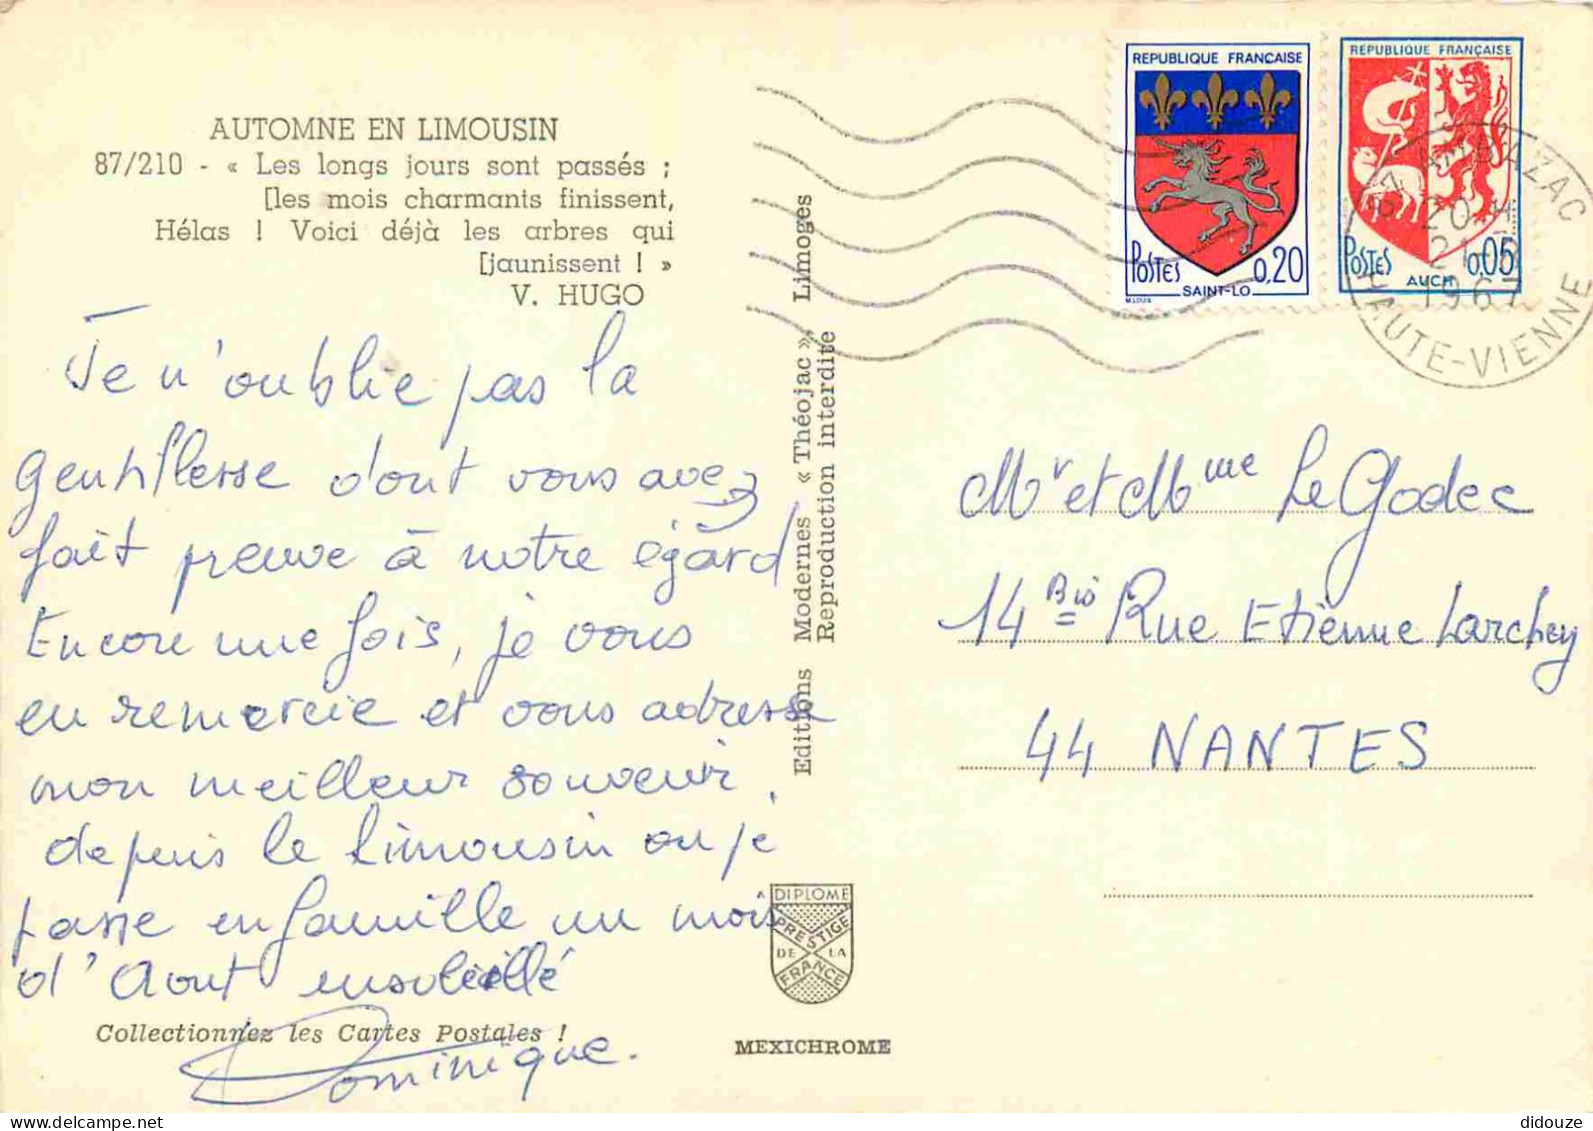 AUTOMNE EN LIMOUSIN
87/210 - « Les longs jours sont passés ;
[les mois charmants finissent,
Hélas ! Voici déjà les arbres qui
[jaunissent ! »
V. HUGO
Je n'oublie pas la
gentillesse dont vous avez
fait preuve à notre égard
Encore une fois, je vous
en remercie et vous adresse
mon meilleur souvenir,
depuis le Limousin ou je
passe en famille un mois
d'Aout ensoleillé
Dominique.
Collectionnez les Cartes Postales !
Editions Modernes « Théojac », Limoges
Reproduction interdite
DIPLOME
PRESTIGE
DE LA
FRANCE
MEXICHROME
REPUBLIQUE FRANÇAISE
POSTES 0,20
SAINT-LO
M. LOUIS
REPUBLIQUE FRANÇAISE
POSTES 0,05
AUCH
87 AMBAZAC
20 H
21-8
1967
HAUTE-VIENNE
Mr et Mme Le Godec
14 Bis Rue Etienne Larchey
44 NANTES
delcampe.net
didouze